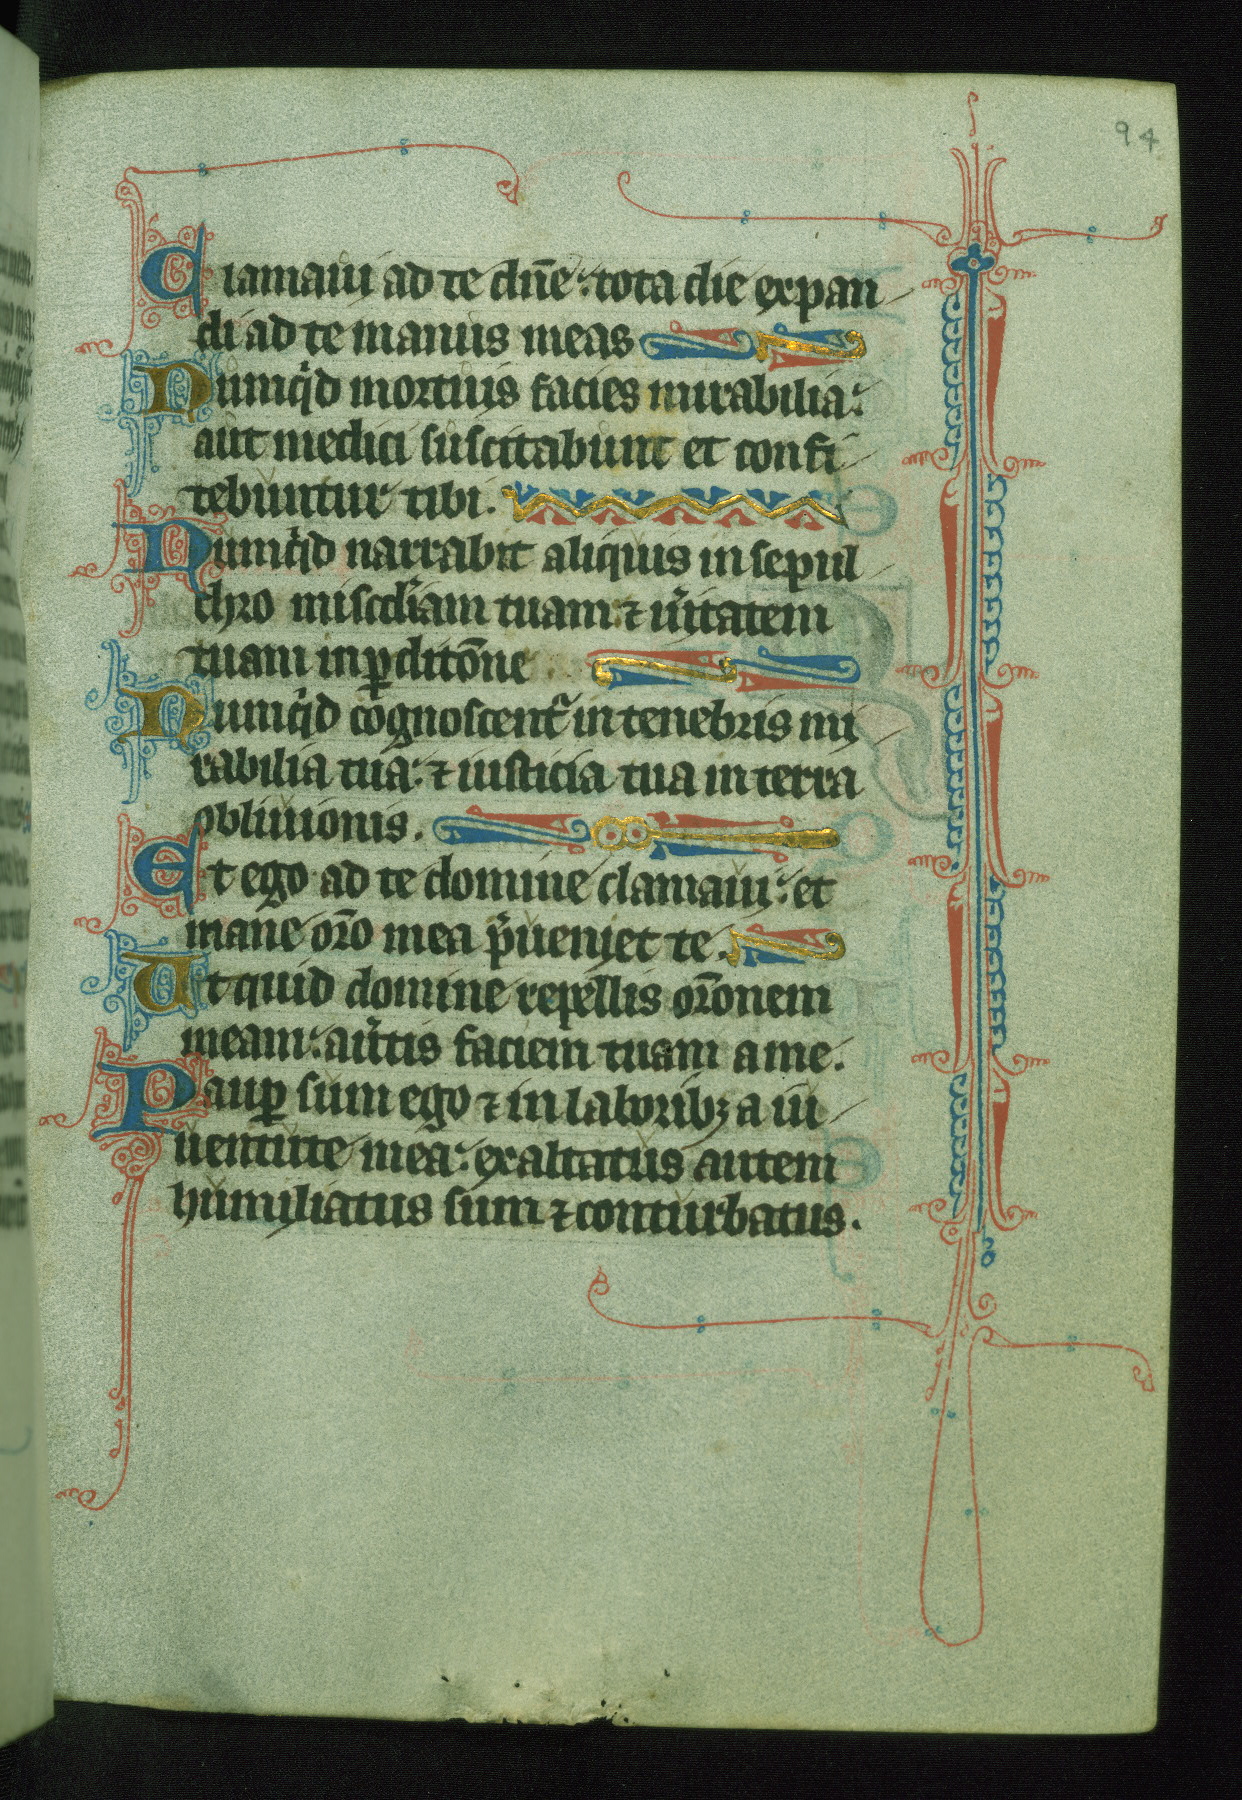 94
Clamaui ad te dn̄e : tota die expan
di ad te manus meas
Numq͛d mortuis facies mirabilia :
aut medici suscitabunt et confi
tebuntur tibi .
Numq͛d narrabit aliquis in sepul
chro misc̄diam tuam : ⁊ ue͛itatem
tuam in ꝑditōne
Numq͛d cōgnoscent͛ in tenebris mi
rabilia tua : ⁊ iusticia tua in terra
obliuionis .
Et ego ad te domine clamaui : et
mane orō mea p͛ueniet te .
Ut quid domine repellis orōnem
meam : au͛tis faciem tuam a me .
Pauꝑ sum ego ⁊ in laboribꝫ a iu
uentute mea : exaltatus autem
humiliatus sum ⁊ conturbatus .